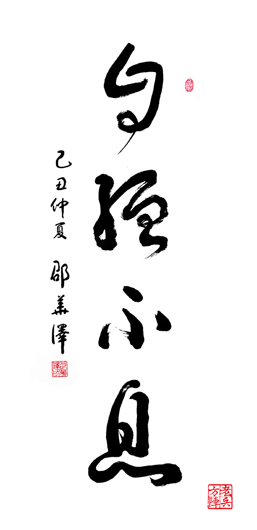 自强不息
己丑仲夏
邵华泽